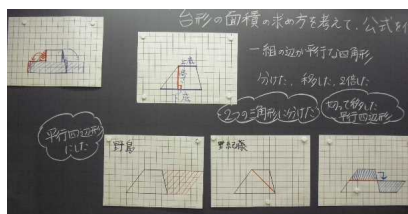 台形の面積の求め方を考えて、公式を
一組の辺が平行な四角形
分けた、移した、2倍した
2つの三角形に分けた
切って移した
平行四辺形
平行四辺形
にした
上底
高さ
下底
野島